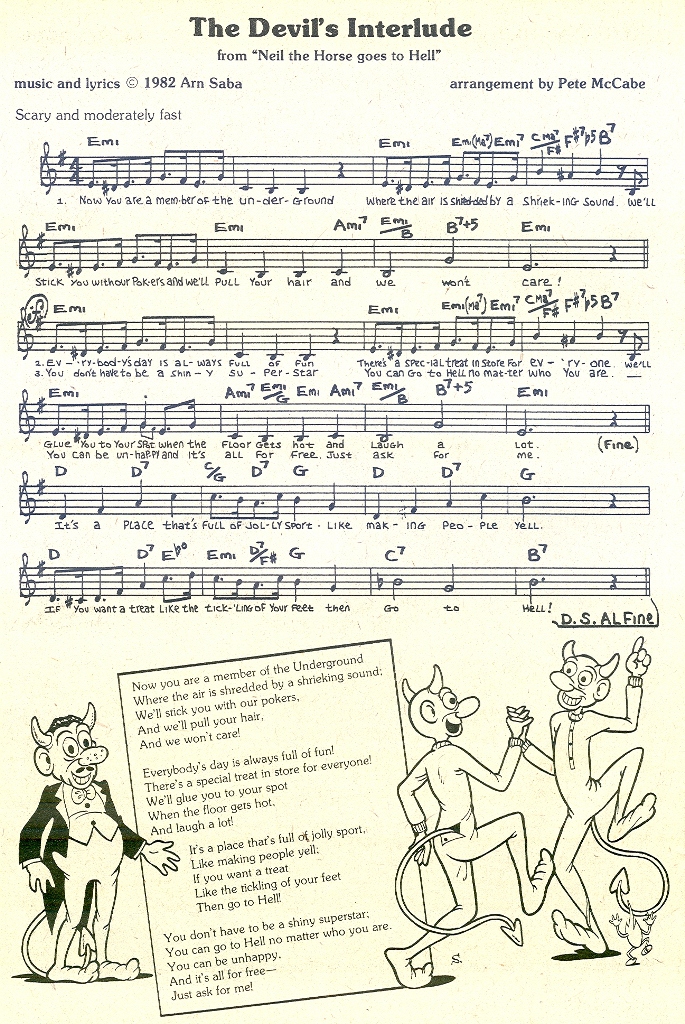 The Devil's Interlude
from "Neil the Horse goes to Hell"
music and lyrics © 1982 Arn Saba
arrangement by Pete McCabe
Scary and moderately fast
Emi Emi Emi(Ma7) Emi7 CMa7/F# F#7b5 B7
1. Now You are a mem-ber of the un-der-Ground Where the air is shredded by a Shriek-ing Sound. We'll
Emi Emi Ami7 Emi/B B7+5 Emi
Stick You with our Pok-ers and we'll Pull Your hair and we won't care!
Emi Emi Emi(Ma7) Emi7 CMa7/F# F#7b5 B7
2. Ev-'ry-bod-y's day is al-ways full of fun There's a spec-ial treat in Store For ev-'ry-one. We'll
3. You don't have to be a shin-y su-Per-Star You can Go to Hell no mat-ter who You are. —
Emi Ami7 Emi/G Emi Ami7 Emi/B B7+5 Emi
Glue You to Your Spot when the Floor Gets hot and Laugh a Lot. (Fine)
You can be un-happy and it's all For Free. Just ask for me.
D D7 C/G D7 G D D7 G
It's a Place that's Full of Jol-ly Sport - Like mak-ing Peo-ple Yell.
D D7 Eb° Emi D7/F# G C7 B7
IF You want a treat Like the tick-'ling of Your Feet then Go to Hell!
D.S. AL Fine
Now you are a member of the Underground
Where the air is shredded by a shrieking sound;
We'll stick you with our pokers,
And we'll pull your hair,
And we won't care!
Everybody's day is always full of fun!
There's a special treat in store for everyone!
We'll glue you to your spot
When the floor gets hot,
And laugh a lot!
It's a place that's full of jolly sport,
Like making people yell;
If you want a treat
Like the tickling of your feet
Then go to Hell!
You don't have to be a shiny superstar;
You can go to Hell no matter who you are.
You can be unhappy,
And it's all for free—
Just ask for me!
S.